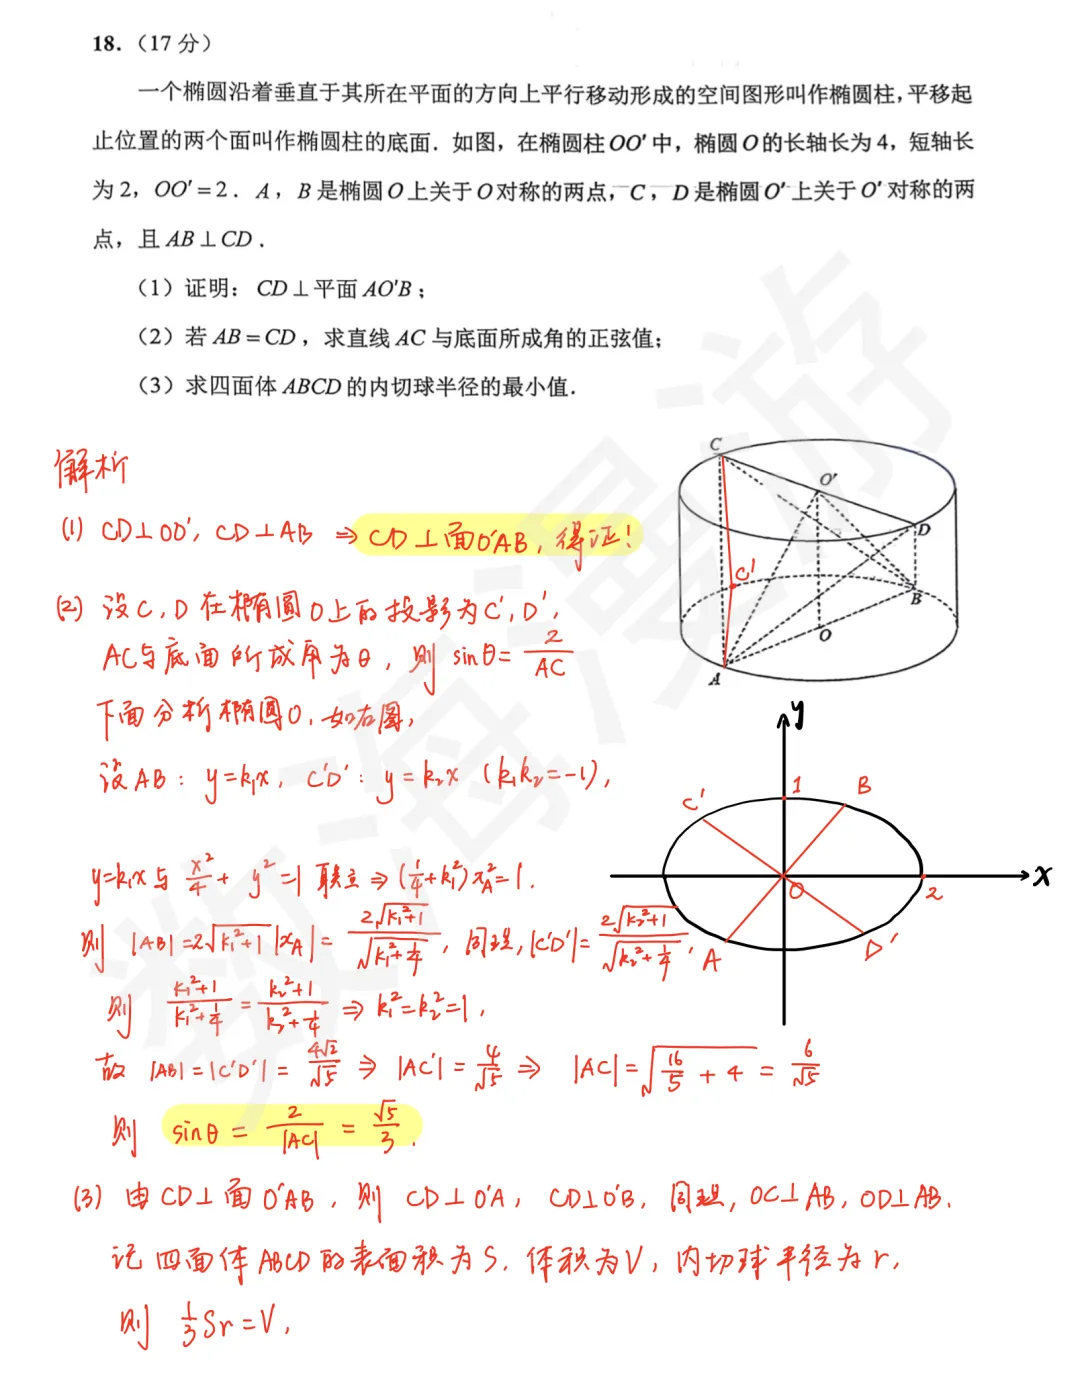 18.（17 分）
一个椭圆沿着垂直于其所在平面的方向上平行移动形成的空间图形叫作椭圆柱，平移起
止位置的两个面叫作椭圆柱的底面．如图，在椭圆柱 OO′ 中，椭圆 O 的长轴长为 4，短轴长
为 2，OO′ = 2．A，B 是椭圆 O 上关于 O 对称的两点，C，D 是椭圆 O′ 上关于 O′ 对称的两
点，且 AB⊥CD．
（1）证明：CD⊥平面 AO′B；
（2）若 AB = CD，求直线 AC 与底面所成角的正弦值；
（3）求四面体 ABCD 的内切球半径的最小值．
解析
(1) CD⊥OO′, CD⊥AB ⇒ CD⊥面O′AB, 得证!
(2) 设C, D在椭圆O上的投影为C′, D′,
AC与底面所成角为θ, 则 sinθ = 2/AC
下面分析椭圆O, 如右图,
设AB: y=k₁x, C′D′: y=k₂x (k₁k₂=-1),
y=k₁x与 x²/4 + y² =1 联立 ⇒ (1/4+k₁²)x_A²=1.
则 |AB|=2√(k₁²+1)|x_A| = 2√(k₁²+1)/√(k₁²+1/4), 同理, |C′D′| = 2√(k₂²+1)/√(k₂²+1/4),
则 (k₁²+1)/(k₁²+1/4) = (k₂²+1)/(k₂²+1/4) ⇒ k₁²=k₂²=1,
故 |AB|=|C′D′| = 4√2/√5 ⇒ |AC′| = 4/√5 ⇒ |AC| = √(16/5 + 4) = 6/√5
则 sinθ = 2/|AC| = √5/3.
(3) 由CD⊥面O′AB, 则 CD⊥O′A, CD⊥O′B, 同理, OC⊥AB, OD⊥AB.
记四面体ABCD的表面积为S, 体积为V, 内切球半径为r,
则 1/3 Sr=V,
C
O′
D
C′
B
O
A
y
1
B
C′
x
O
2
A
D′
数海漫游